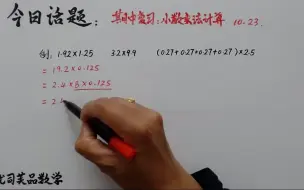 今日话题：期中复习：小数乘法计算 10.23.
例: 1.92×1.25 3.2×99 (0.27+0.27+0.27+0.27)×2.5
= 19.2×0.125
= 2.4×8×0.125
= 2.4
优司芙品数学